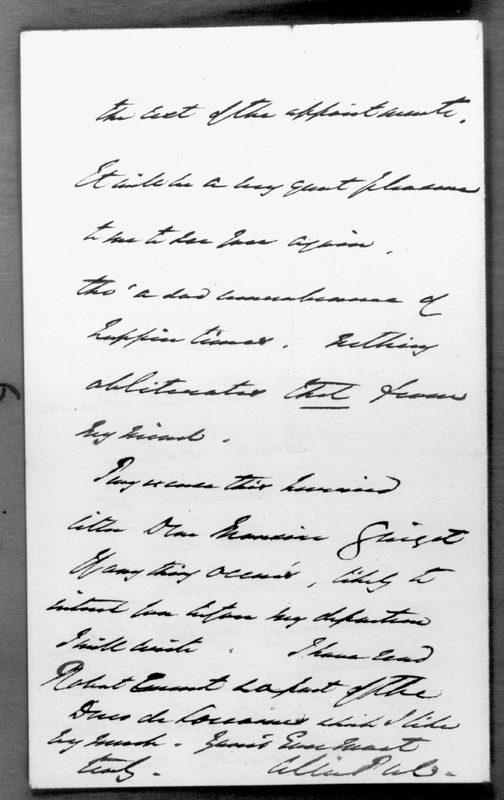 the rest of the appointments.
It will be a very great pleasure
to me to see you again,
tho' a sad remembrance of
happier times. Nothing
obliterates that from
my mind.
Pray excuse this hurried
letter Dear Monsieur Guizot
If any thing occurs, likely to
interest you before my departure
I will write. I have read
Robert Emmet & a part of the
Ducs de Lorraine which I like
very much. Yours Ever most
truly.